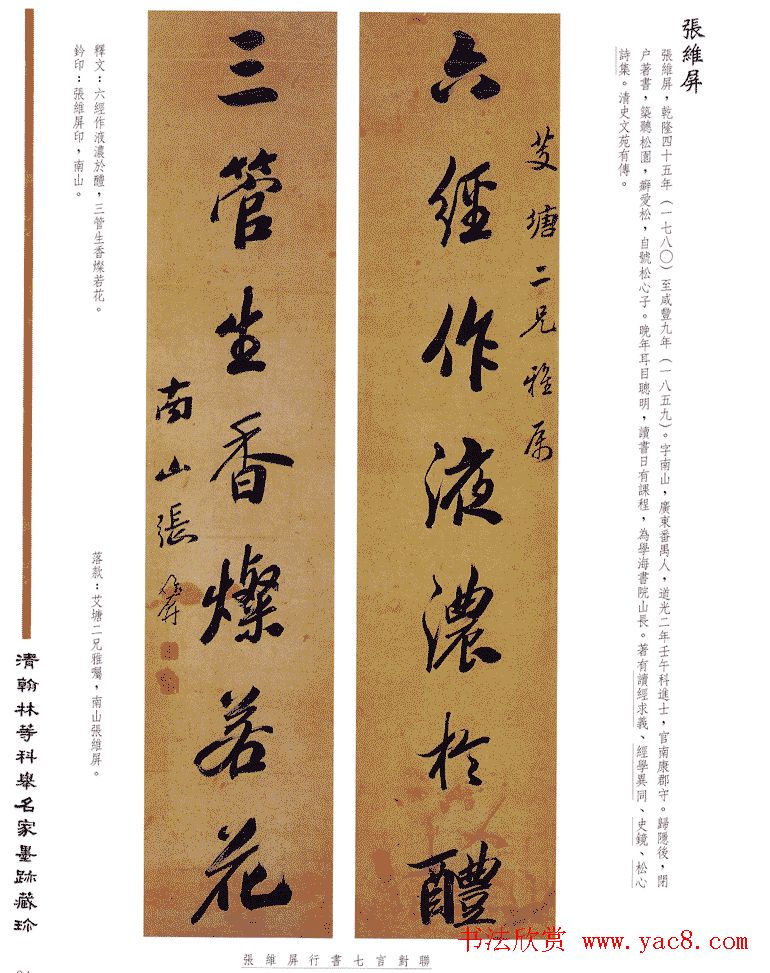 張維屏
張維屏，乾隆四十五年（一七八〇）至咸豐九年（一八五九）。字南山，廣東番禺人，道光二年壬午科進士，官南康郡守。歸隱後，閉
户著書，築聽松園，癖愛松，自號松心子。晚年耳目聰明，讀書日有課程，為學海書院山長。著有讀經求義、經學異同、史鏡、松心
詩集。清史文苑有傳。
艾塘二兄雅屬
六經作液濃於醴
三管生香燦若花
南山張維屏
釋文：六經作液濃於醴，三管生香燦若花。
鈐印：張維屏印，南山。
落款：艾塘二兄雅囑，南山張維屏。
清翰林等科舉名家墨跡藏珍
張維屏行書七言對聯
书法欣赏 www.yac8.com